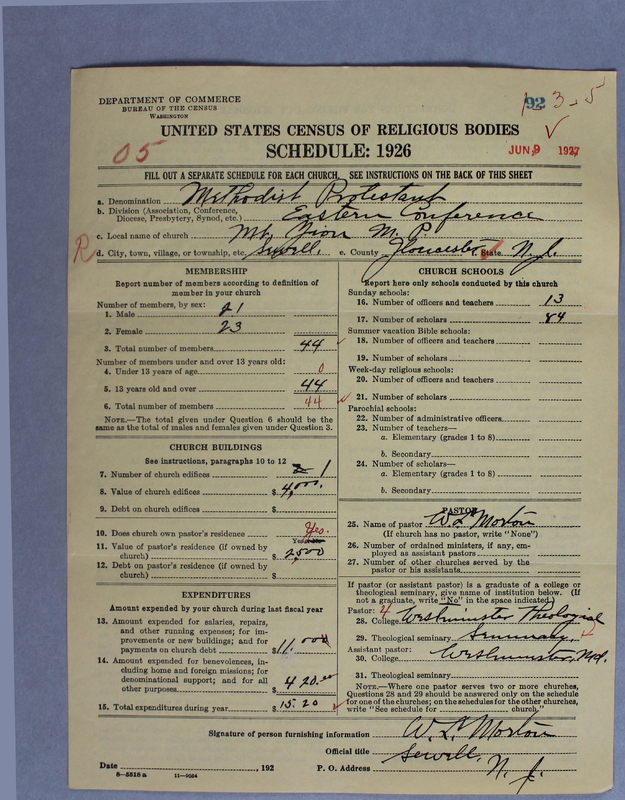 DEPARTMENT OF COMMERCE
BUREAU OF THE CENSUS
WASHINGTON
192 3-5
UNITED STATES CENSUS OF RELIGIOUS BODIES
SCHEDULE: 1926
05
JUN 9 1927
FILL OUT A SEPARATE SCHEDULE FOR EACH CHURCH. SEE INSTRUCTIONS ON THE BACK OF THIS SHEET
a. Denomination Methodist Protestant
b. Division (Association, Conference, Diocese, Presbytery, Synod, etc.) Eastern Conference
c. Local name of church Mt. Zion M. P.
R d. City, town, village, or township, etc. Sewell, e. County Gloucester f. State N. J.
MEMBERSHIP
Report number of members according to definition of
member in your church
Number of members, by sex:
1. Male 21
2. Female 23
3. Total number of members 44
Number of members under and over 13 years old:
4. Under 13 years of age 0
5. 13 years old and over 44
6. Total number of members 44
NOTE.—The total given under Question 6 should be the
same as the total of males and females given under Question 3.
CHURCH BUILDINGS
See instructions, paragraphs 10 to 12
7. Number of church edifices 2 1
8. Value of church edifices $ 4,000.
9. Debt on church edifices $
10. Does church own pastor's residence Yes.
Yes or no
11. Value of pastor's residence (if owned by
church) $ 2500
12. Debt on pastor's residence (if owned by
church) $
EXPENDITURES
Amount expended by your church during last fiscal year
13. Amount expended for salaries, repairs,
and other running expenses; for im-
provements or new buildings; and for
payments on church debt $ 11.00
14. Amount expended for benevolences, in-
cluding home and foreign missions; for
denominational support; and for all
other purposes $ 420.00
15. Total expenditures during year $ 15.20
CHURCH SCHOOLS
Report here only schools conducted by this church
Sunday schools:
16. Number of officers and teachers 13
17. Number of scholars 84
Summer vacation Bible schools:
18. Number of officers and teachers
19. Number of scholars
Week-day religious schools:
20. Number of officers and teachers
21. Number of scholars
Parochial schools:
22. Number of administrative officers
23. Number of teachers—
a. Elementary (grades 1 to 8)
b. Secondary
24. Number of scholars—
a. Elementary (grades 1 to 8)
b. Secondary
PASTOR
25. Name of pastor W L Morton
(If church has no pastor, write "None")
26. Number of ordained ministers, if any, em-
ployed as assistant pastors
27. Number of other churches served by the
pastor or his assistants
If pastor (or assistant pastor) is a graduate of a college or
theological seminary, give name of institution below. (If
not a graduate, write "No" in the space indicated)
Pastor: 4
28. College Westminster Theological
29. Theological seminary Seminary,
Assistant pastor:
30. College Westminster, Md.
31. Theological seminary
NOTE.—Where one pastor serves two or more churches,
Questions 28 and 29 should be answered only on the schedule
for one of the churches; on the schedules for the other churches,
write "See schedule for church."
Signature of person furnishing information W. L. Morton
Official title
Date , 192 P. O. Address Sewell, N. J.
8—5518 a 11—9054